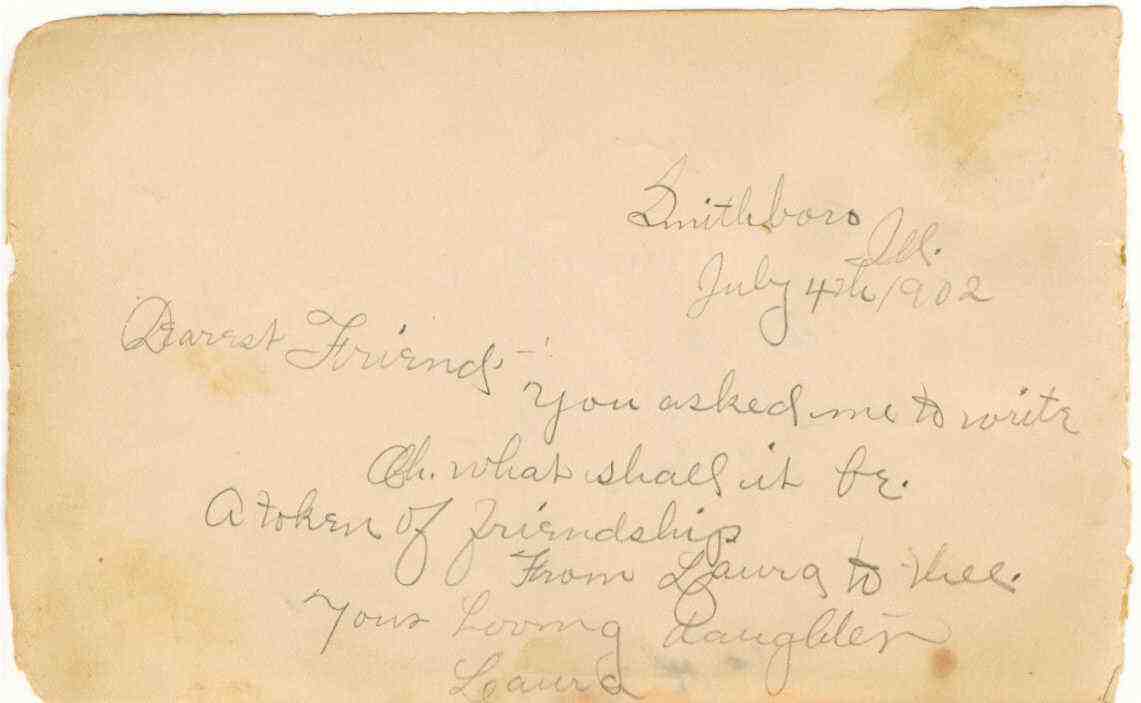 Smithboro
Ill.
July 4th/902
Dearest Friend:
You asked me to write
Oh. what shall it be.
A token of friendship
From Laura to thee.
Your Loving daughter
Laura